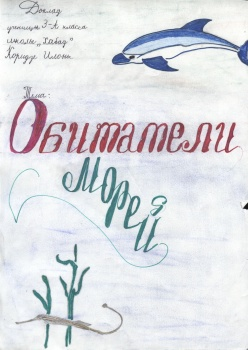 Доклад
ученицы 3-А класса
школы „Хабад"
Илоны
Тема:
Обитатели
морей